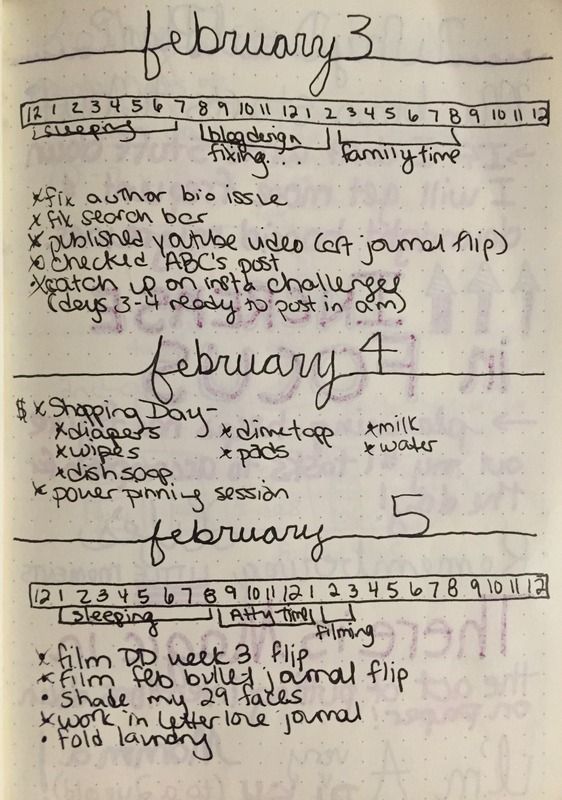 february 3
12 1 2 3 4 5 6 7 8 9 10 11 12 1 2 3 4 5 6 7 8 9 10 11 12
sleeping blog design family time
fixing...
x fix author bio issue
x fix search bar
x published youtube video (art journal flip)
x checked ABC's post
x catch up on insta challenges
(days 3-4 ready to post in am)
february 4
$ x Shopping Day-
x diapers x dimetapp x milk
x wipes x pads x water
x dish soap
x power pinning session
february 5
12 1 2 3 4 5 6 7 8 9 10 11 12 1 2 3 4 5 6 7 8 9 10 11 12
sleeping Atty time
filming
x film DD week 3 flip
x film feb bullet journal flip
• Shade my 29 faces
x work in letter love journal
• fold laundry